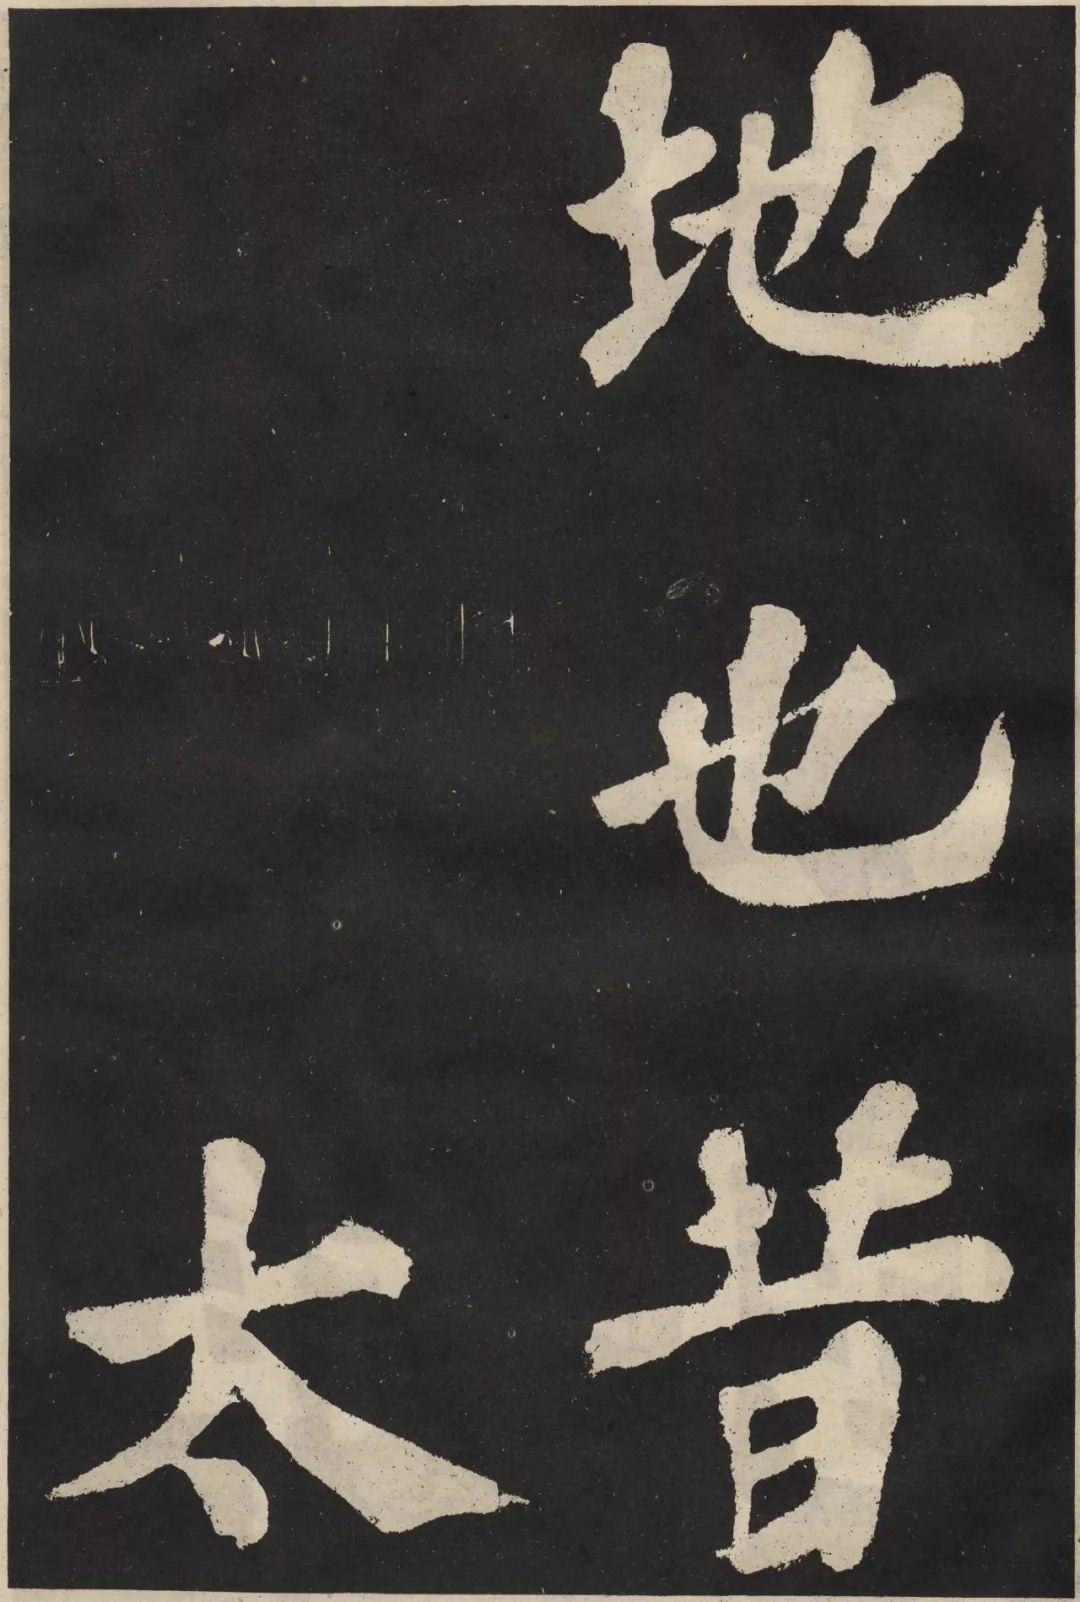 地也昔
太